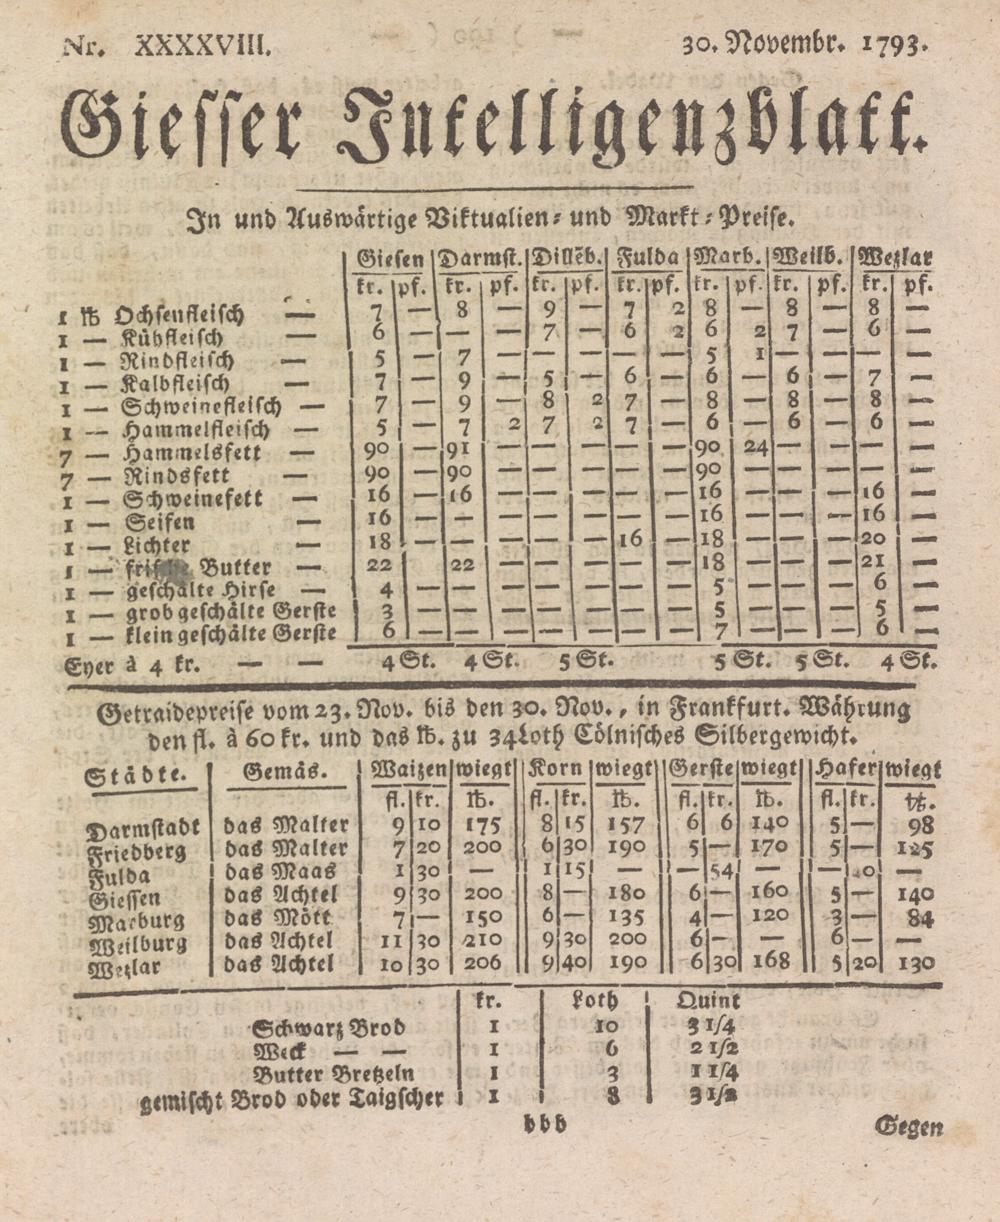 Nr. XXXXVIII. 30. Novembr. 1793.
Giesser Intelligenzblatt.
In und Auswärtige Viktualien- und Markt-Preise.
Giesen Darmst. Dillēb. Fulda Marb. Weilb. Wezlar
kr. pf. kr. pf. kr. pf. kr. pf. kr. pf. kr. pf. kr. pf.
1 ℔ Ochsenfleisch — 7 — 8 — 9 — 7 2 8 — 8 — 8 —
1 — Kühfleisch 6 — — — 7 — 6 2 6 2 7 — 6 —
1 — Rindfleisch — 5 — 7 — — — — — 5 1 — — — —
1 — Kalbfleisch — 7 — 9 — 5 — 6 — 6 — 6 — 7 —
1 — Schweinefleisch — 7 — 9 — 8 2 7 — 8 — 8 — 8 —
1 — Hammelfleisch — 5 — 7 2 7 2 7 — 6 — 6 — 6 —
7 — Hammelsfett — 90 — 91 — — — — — 90 24 — — — —
7 — Rindsfett — 90 — 90 — — — — — 90 — — — — —
1 — Schweinefett — 16 — 16 — — — — — 16 — — — 16 —
1 — Seifen — 16 — — — — — — — 16 — — — 16 —
1 — Lichter — 18 — — — — — 16 — 18 — — — 20 —
1 — frische Butter — 22 — 22 — — — — — 18 — — — 21 —
1 — geschälte Hirse — 4 — — — — — — — 5 — — — 6 —
1 — grob geschälte Gerste 3 — — — — — — — 5 — — — 5 —
1 — klein geschälte Gerste 6 — — — — — — — 7 — — — 6 —
Eyer à 4 kr. — — 4 St. 4 St. 5 St. 5 St. 5 St. 4 St.
Getraidepreise vom 23. Nov. bis den 30. Nov., in Frankfurt. Währung
den fl. à 60 kr. und das ℔. zu 34 Loth Cölnisches Silbergewicht.
Städte. Gemäs. Waizen wiegt Korn wiegt Gerste wiegt Hafer wiegt
fl. kr. ℔. fl. kr. ℔. fl. kr. ℔. fl. kr. ℔.
Darmstadt das Malter 9 10 175 8 15 157 6 6 140 5 — 98
Friedberg das Malter 7 20 200 6 30 190 5 — 170 5 — 125
Fulda das Maas 1 30 — 1 15 — — 54 — — —
Giessen das Achtel 9 30 200 8 — 180 6 — 160 5 — 140
Marburg das Mött 7 — 150 6 — 135 4 — 120 3 — 84
Weilburg das Achtel 11 30 210 9 30 200 6 — — 6 — —
Wezlar das Achtel 10 30 206 9 40 190 6 30 168 5 20 130
kr. Loth Quint
Schwarz Brod 1 10 3 1/4
Weck — — 1 6 2 1/2
Butter Bretzeln 1 3 1 1/4
gemischt Brod oder Taigscher 1 8 3 1/2
bbb Gegen